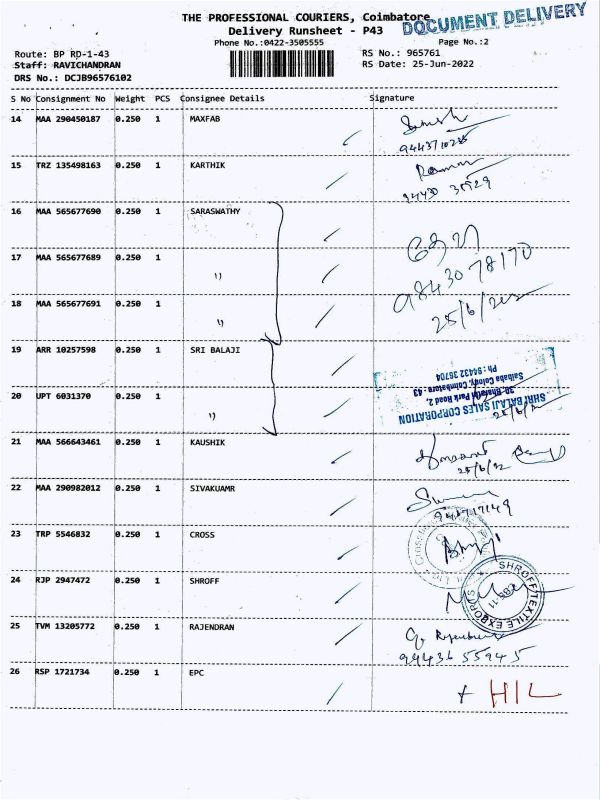 THE PROFESSIONAL COURIERS, Coimbatore
DOCUMENT DELIVERY
Delivery Runsheet - P43
Phone No.:0422-3505555
Page No.:2
Route: BP RD-1-43
RS No.: 965761
Staff: RAVICHANDRAN
RS Date: 25-Jun-2022
DRS No.: DCJB96576102
S No Consignment No Weight PCS Consignee Details Signature
14 MAA 290450187 0.250 1 MAXFAB
15 TRZ 135498163 0.250 1 KARTHIK
16 MAA 565677690 0.250 1 SARASWATHY
17 MAA 565677689 0.250 1 "
9843078170
18 MAA 565677691 0.250 1 "
19 ARR 10257598 0.250 1 SRI BALAJI
SHRI BALAJI SALES CORPORATION
30-Bharathi Park Road 2,
Saibaba Colony, Coimbatore - 43
Ph : 94432 36704
20 UPT 6031370 0.250 1 "
21 MAA 566643461 0.250 1 KAUSHIK
25/6/22
22 MAA 290982012 0.250 1 SIVAKUAMR
23 TRP 5546832 0.250 1 CROSS
24 RJP 2947472 0.250 1 SHROFF
SHROFF TEXTILE EXPORTS
25 TVM 13205772 0.250 1 RAJENDRAN
94436 55945
26 RSP 1721734 0.250 1 EPC
H/L